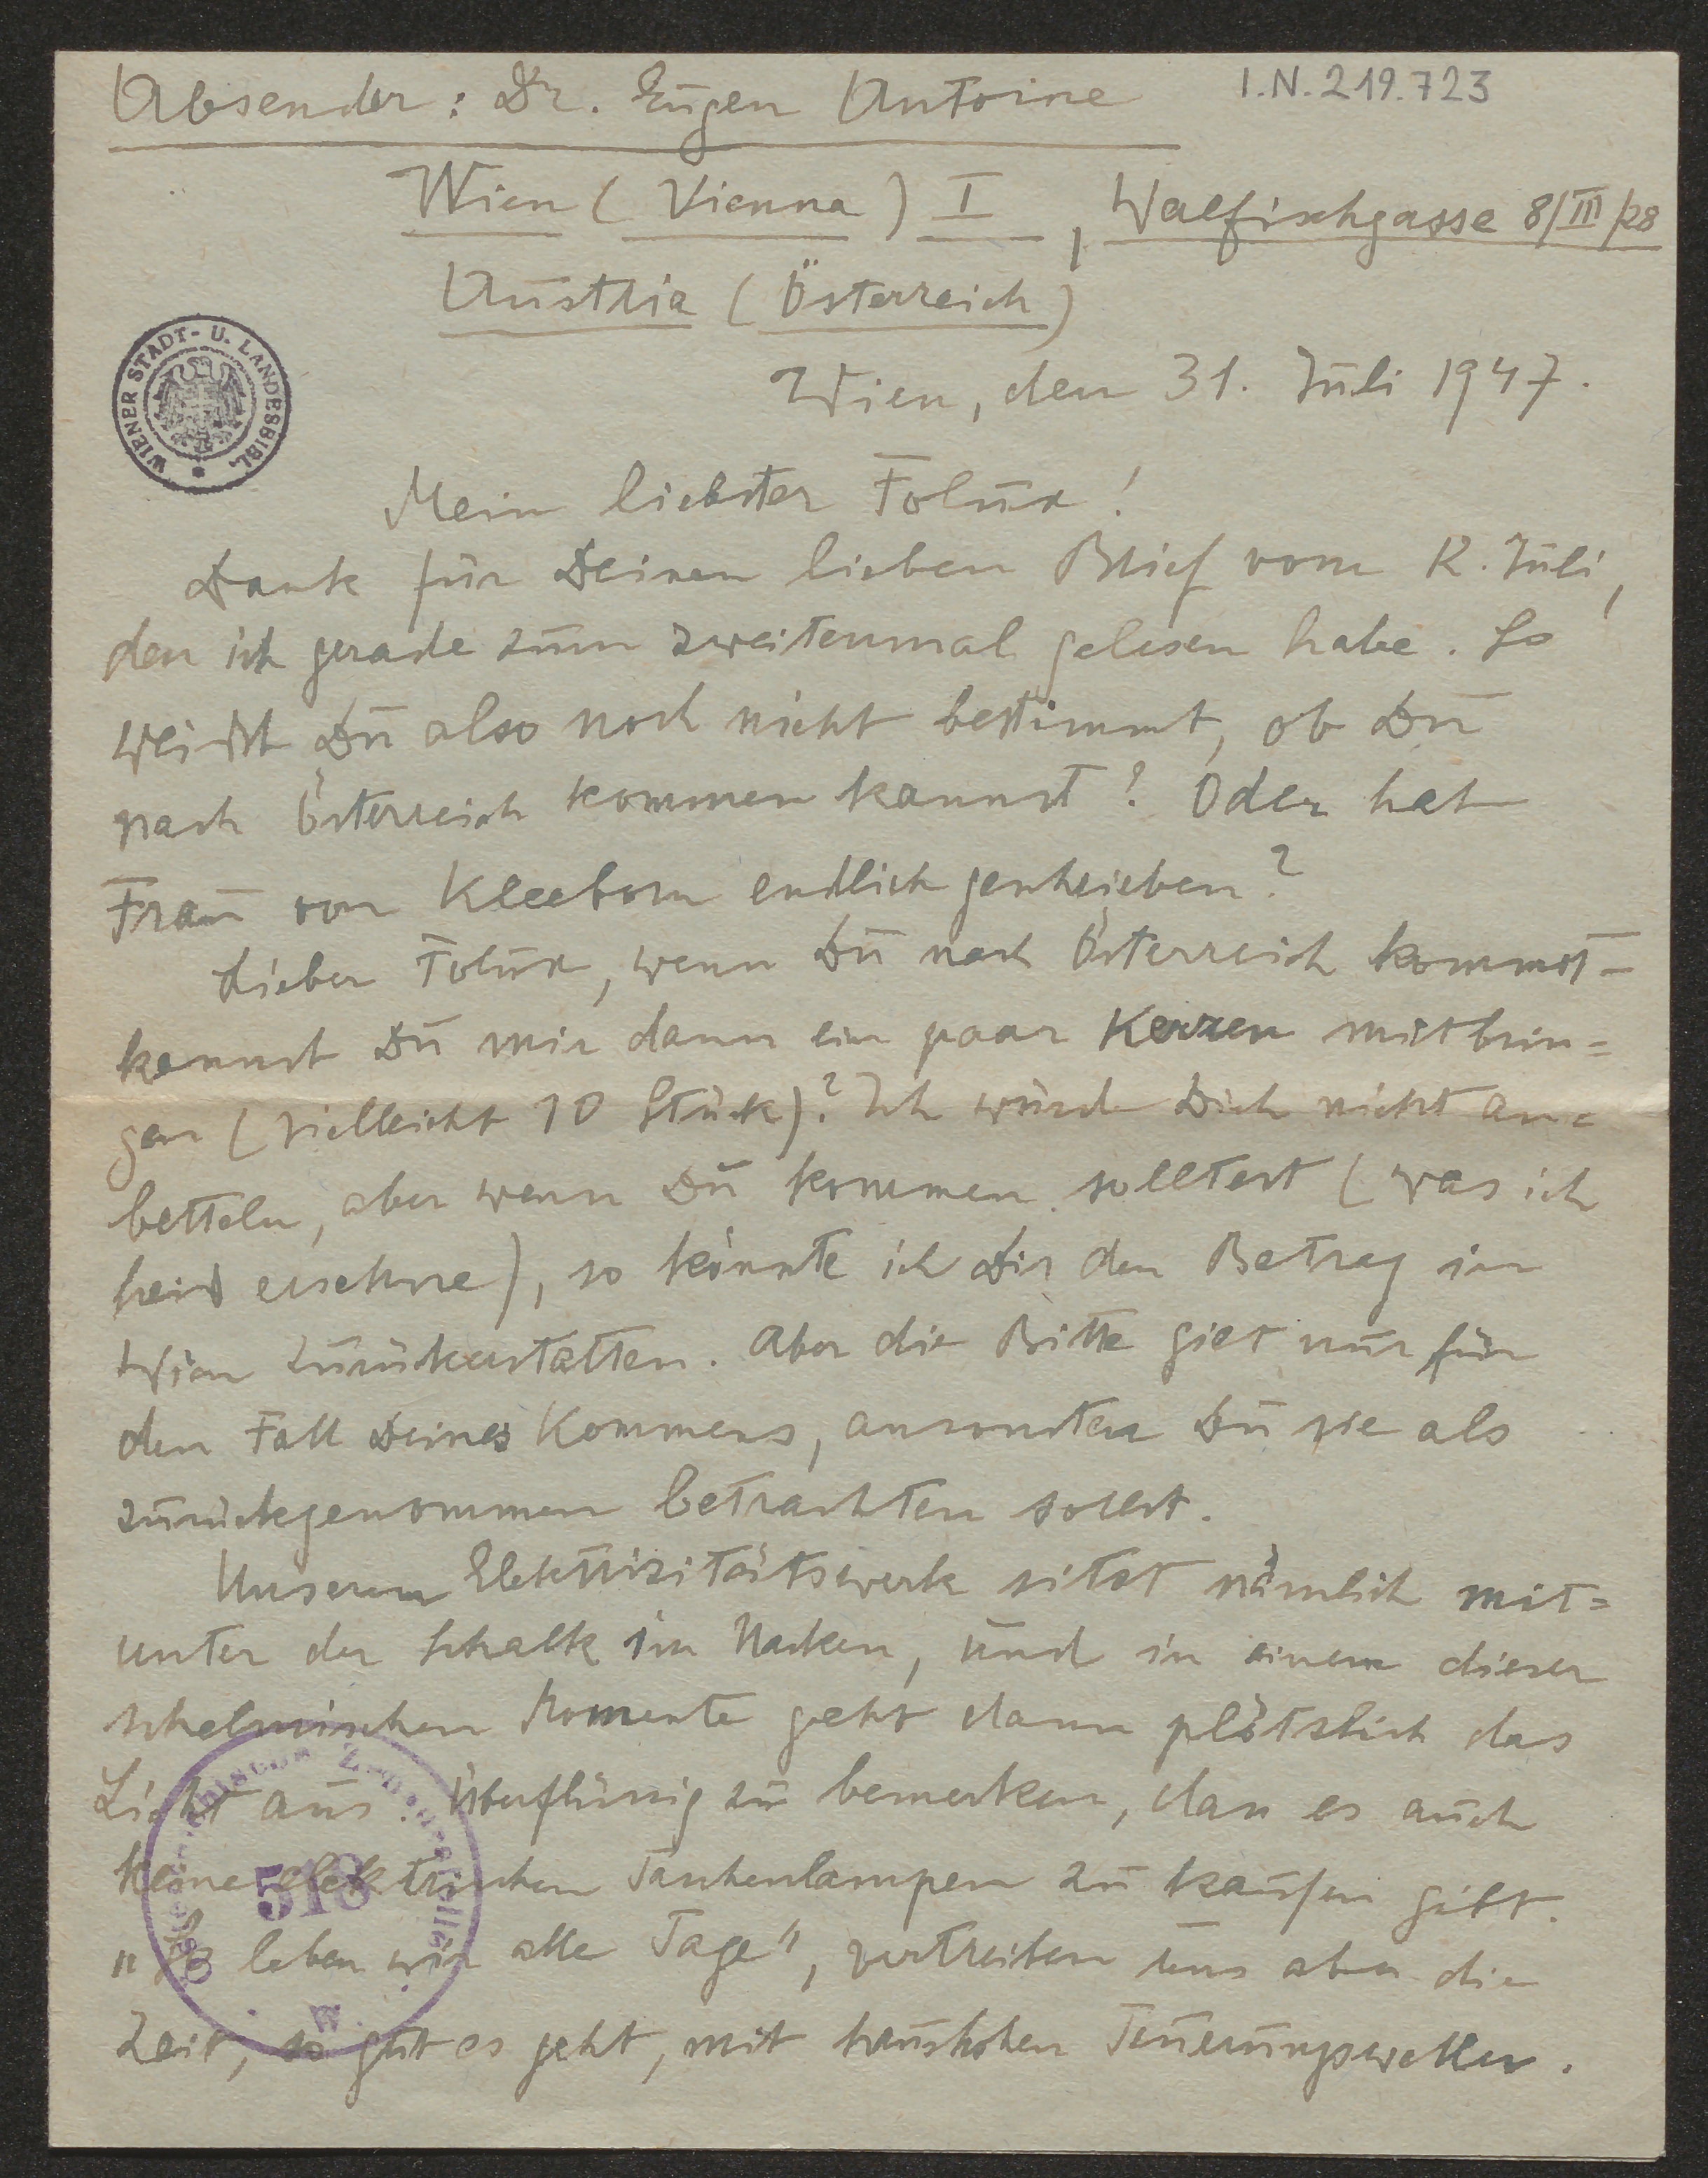 Absender: Dr. Eugen Antoine
I.N. 219.723
Wien (Vienna) I, Walfischgasse 8/III/28
Austria (Österreich)
WIENER STADT- U. LANDESBIBL.
Wien, den 31. Juli 1947.
Mein liebster Folux!
Dank für Deinen lieben Brief vom 12. Juli,
den ich gerade zum zweitenmal gelesen habe. So
weißt Du also noch nicht bestimmt, ob Du
nach Österreich kommen kannst? Oder hat
Frau von Kleeborn endlich geschrieben?
Lieber Folux, wenn Du nach Österreich kommst –
kannst Du mir dann ein paar Kerzen mitbrin=
gen (vielleicht 10 Stück)? Ich würde Dich nicht an=
betteln, aber wenn Du kommen solltest (was ich
heiß ersehne), so könnte ich Dir den Betrag in
Wien zurückerstatten. Aber die Bitte gilt nur für
den Fall Deines Kommens, ansonsten Du sie als
zurückgenommen betrachten sollst.
Unserem Elektrizitätswerk sitzt nämlich mit=
unter der Schalk im Nacken, und in einem dieser
schelmischen Momente geht dann plötzlich das
Licht aus. Überflüssig zu bemerken, dass es auch
keine elektrischen Taschenlampen zu kaufen gibt.
"So leben wir alle Tage", vertreiben uns aber die
Zeit, so gut es geht, mit haushohen Teuerungswellen.
Österreichische Zensurstelle
518
W.